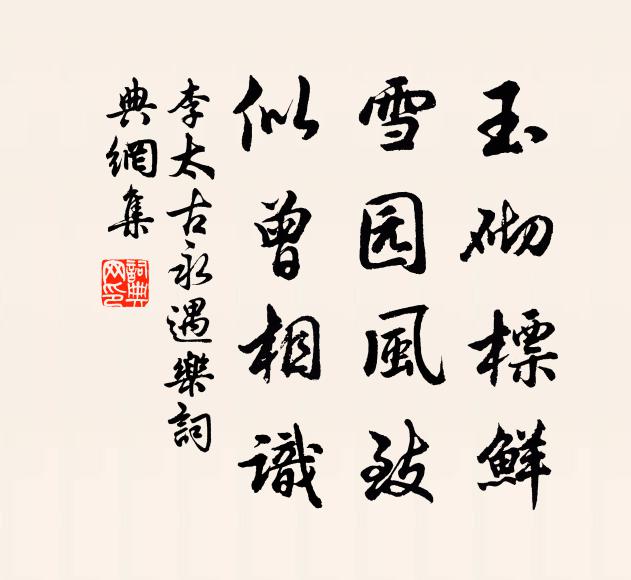 玉砌標鮮
雪园風致
似曾相識
李太古永遇樂詞
典網集
詞典网印